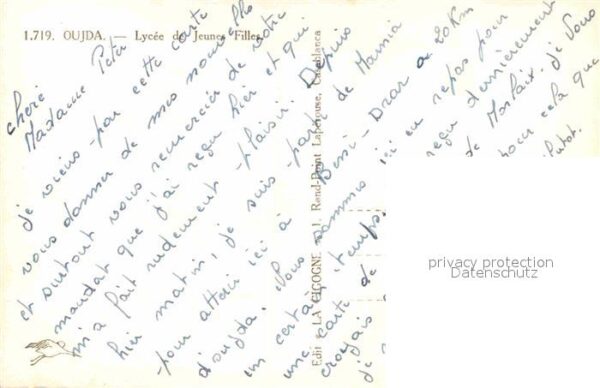 1.719. OUJDA. — Lycée de Jeunes Filles
Chère
Madame Peter
je viens par cette carte
vous donner de mes nouvelles
et surtout vous remercier de votre
mandat que j'ai reçu hier et qui
m'a fait rudement plaisir. Depuis
hier matin, je suis parti de Marnia
pour atterir ici à Beni-Drar à 20 Km
d'oujda. Nous sommes ici en repos pour
un certain temps. reçu dernièrement
une carte de de Morlaix. Je Vous
croyais pour cela que
de
Edit. LA CIGOGNE 1, Rand-Point Lapérouse, Casablanca
privacy protection
Datenschutz